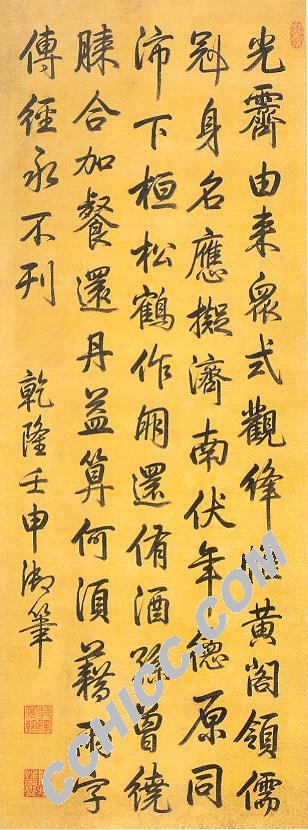 光霽由来衆式觀絳帷黃閣領儒
冠身名應擬濟南伏年德原同
沛下桓松鶴作朋還侑酒孫曾繞
膝合加餐還丹益算何須藉兩字
傳經永不刊
乾隆壬申御筆
CCHICC.COM